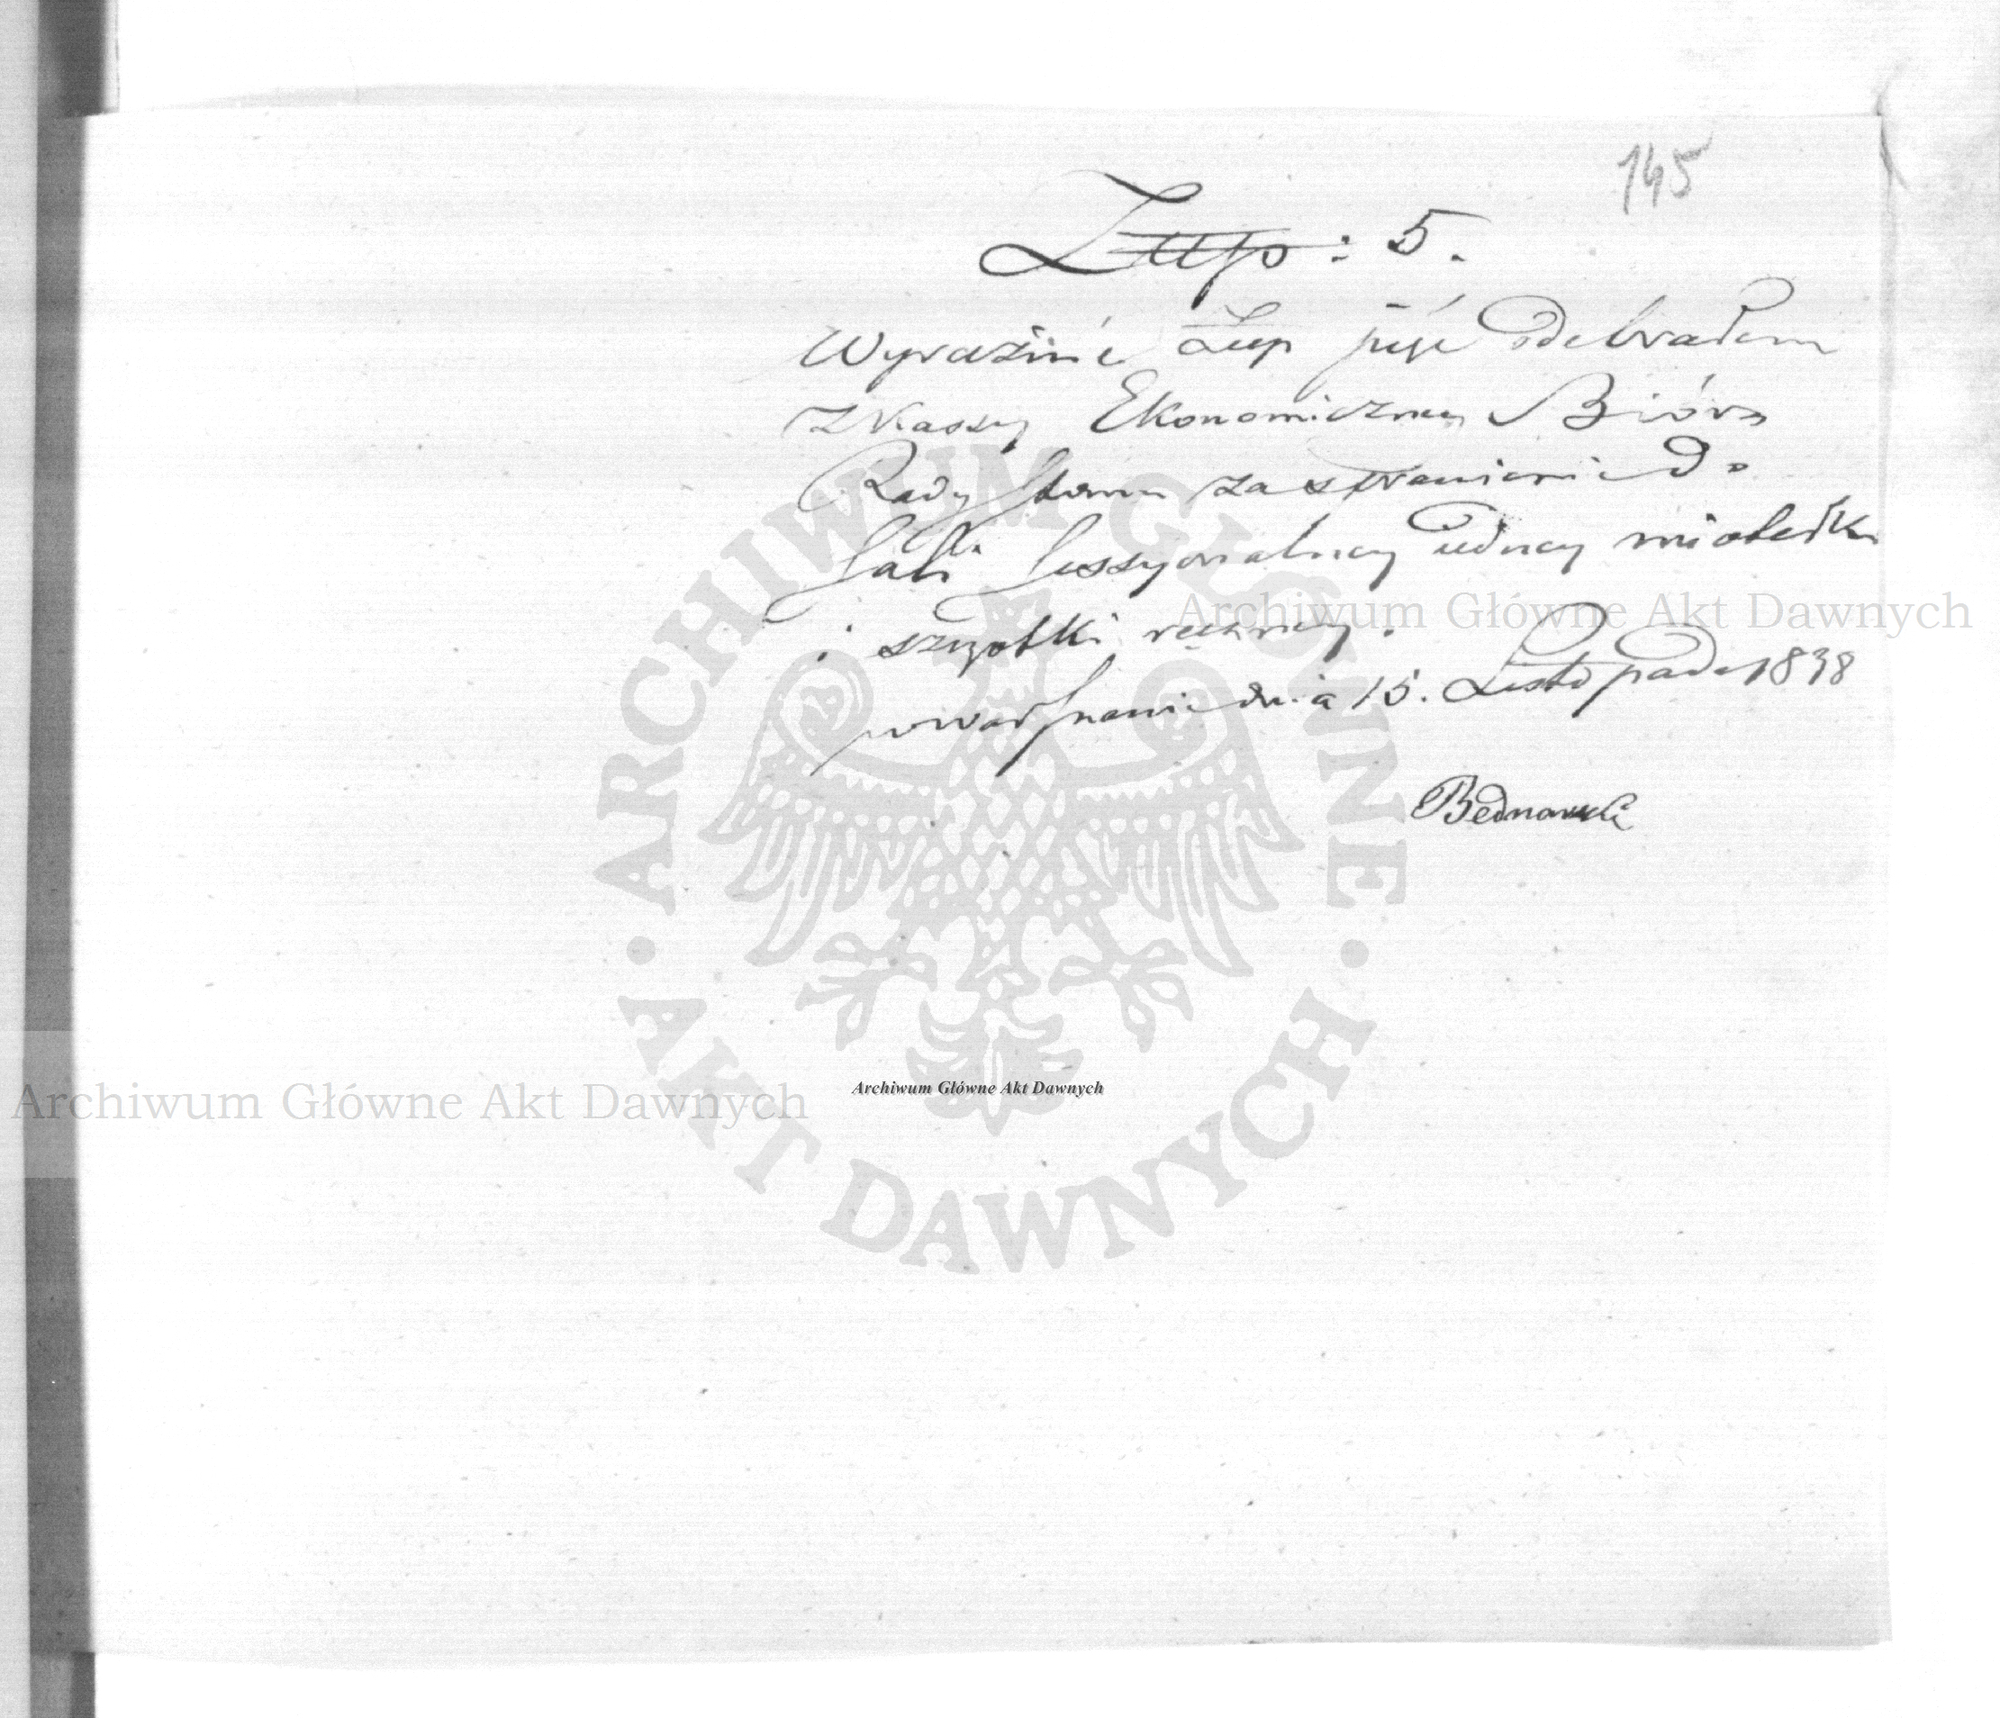 145
Złłp: 5.
Wyraźnie Złp pięć Odebrałem
z Kassy Ekonomiczney Bióra
Rady Stanu za sprawienie do
Sali Sessyonalney iedney miotełki
i szczotki ręczney.
w Warszawie dnia 15. Listopada 1838
Bednarski
ARCHIWUM GŁÓWNE AKT DAWNYCH
Archiwum Główne Akt Dawnych
Archiwum Główne Akt Dawnych
Archiwum Główne Akt Dawnych